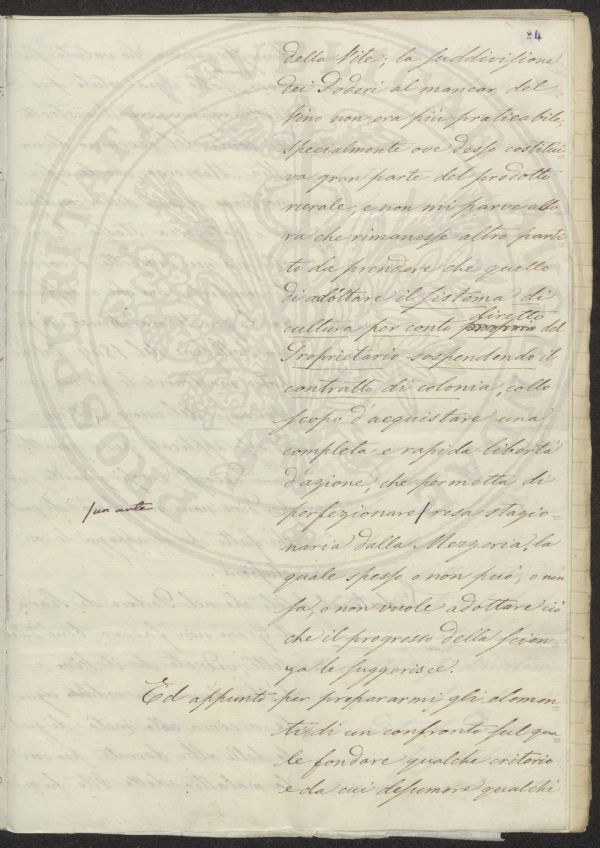 24
della Vite; la suddivisione
dei Poderi al mancar del
Vino non era più praticabile,
specialmente ove desso costitui-
va gran parte del prodotto
rurale, e non mi parve allo-
ra che rimanesse altro parti-
to da prendere che quello
di adottare il sistema di
cultura per conto proprio diretto del
Proprietario sospendendo il
contratto di colonia, collo
scopo d'acquistare una
completa e rapida libertà
d'azione, che permetta di
perfezionare / resa stagio-
/ un arte
naria dalla Mezzeria, la
quale spesso o non può, o non
sa, o non vuole adottare ciò
che il progresso della scien-
za le suggerisce.
Ed appunto per prepararmi gli elemen-
ti di un confronto sul qua-
le fondare qualche criterio
e da cui desumere qualchè
PROSPERITATI PUBLICAE